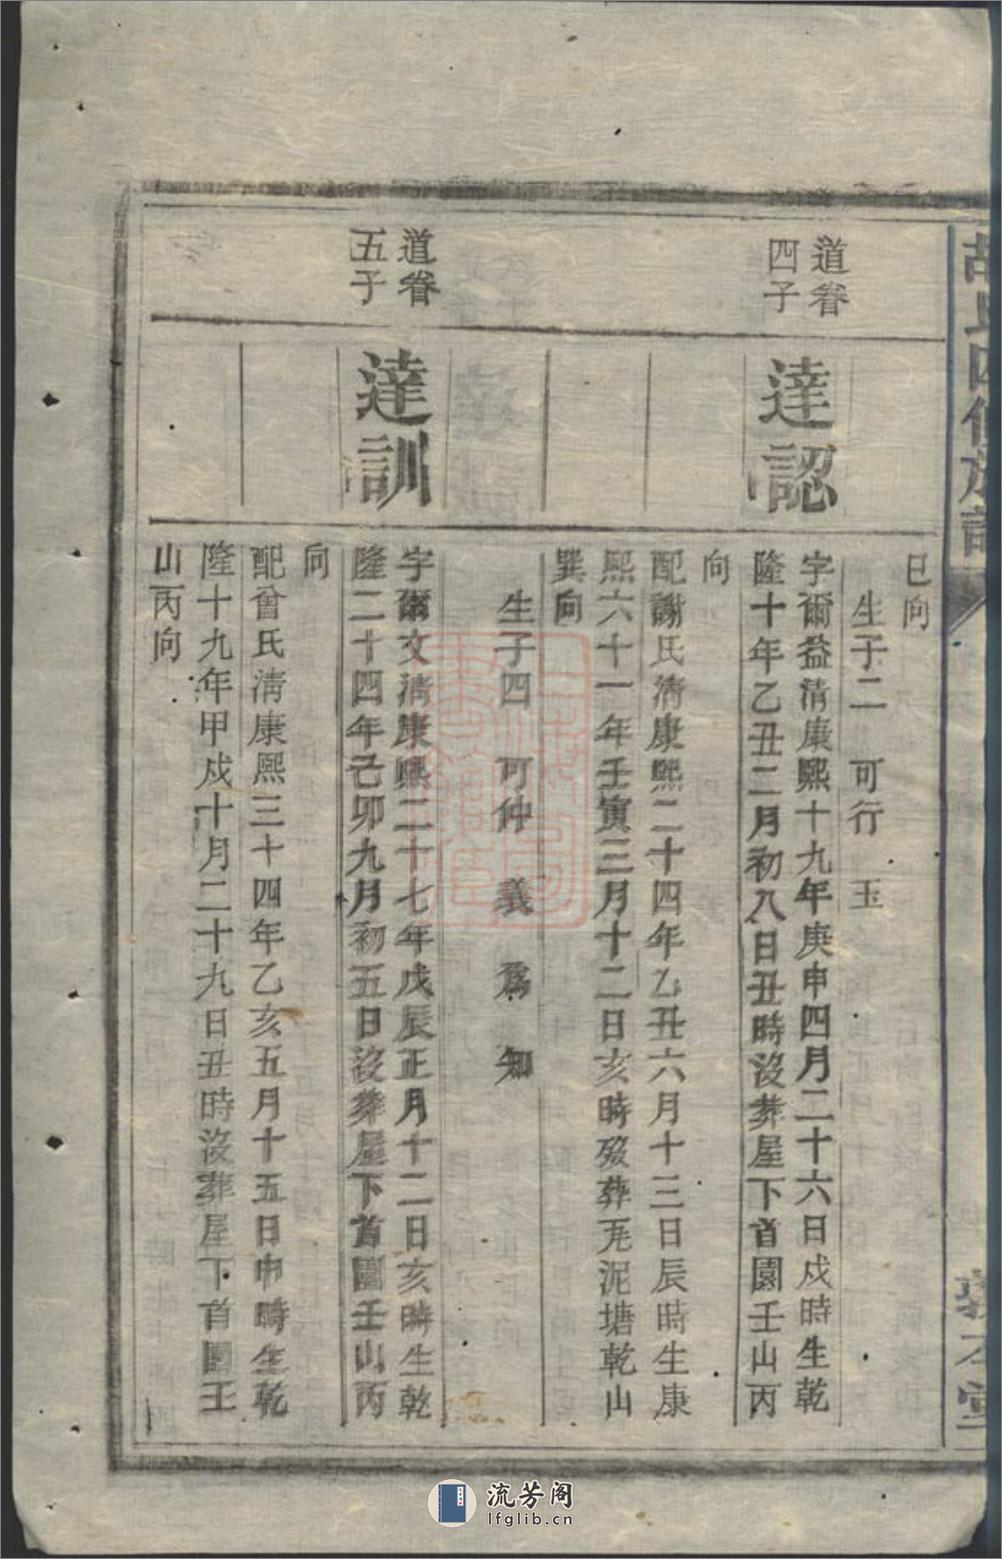 胡氏四修族譜
敦本堂
巳向
生子二 可行 玉
道眷
四子
達認
字爾益清康熙十九年庚申四月二十六日戍時生乾
隆十年乙丑二月初八日丑時沒葬屋下首園壬山丙
向
配謝氏清康熙二十四年乙丑六月十三日辰時生康
熙六十一年壬寅三月十二日亥時歿葬瓦泥塘乾山
巽向
生子四 可仲 義 為 知
道眷
五子
達訓
字爾文清康熙二十七年戊辰正月十二日亥時生乾
隆二十四年己卯九月初五日沒葬屋下首園壬山丙
向
配曾氏清康熙三十四年乙亥五月十五日申時生乾
隆十九年甲戍十月二十九日丑時沒葬屋下首園壬
山丙向
流芳阁
lfglib.cn